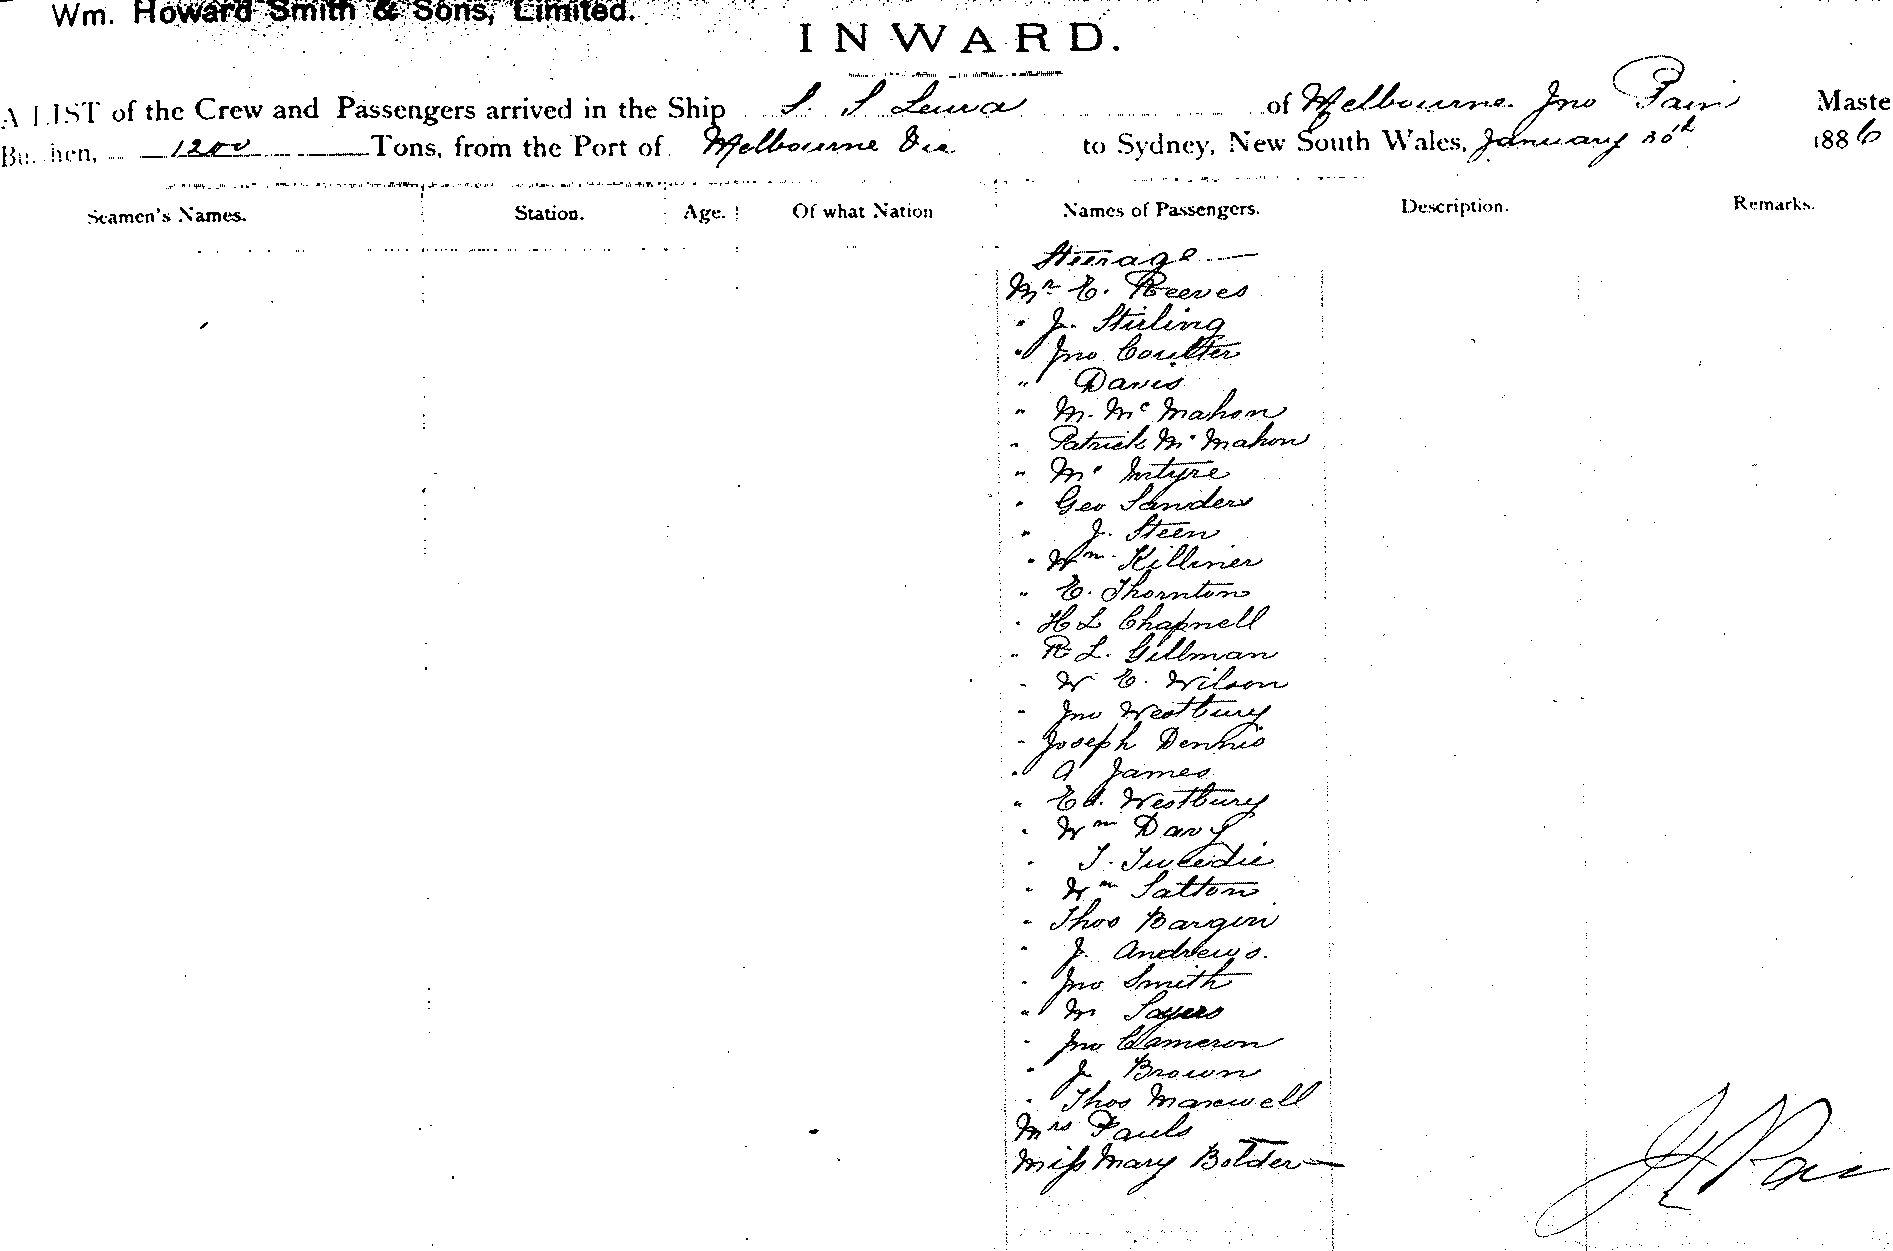 Wm. Howard Smith & Sons, Limited.
INWARD.
A LIST of the Crew and Passengers arrived in the Ship S. S Leura of Melbourne. Jno Pain Maste
Bu hen, 1200 Tons, from the Port of Melbourne Vic to Sydney, New South Wales, January 30th 1886
Seamen's Names. Station. Age. Of what Nation Names of Passengers. Description. Remarks.
Steerage
Mr E. Reeves
" J. Stirling
" Jno Coulter
" Davis
" M. Mc Mahon
" Patrick Mc Mahon
" Mc Intyre
" Geo Sanders
" J. Steen
" Wm Killiner
" E. Thornton
" H L Chapnell
" R L. Gillman
" W E. Wilson
" Jno Westbury
" Joseph Dennis
" A James
" Ed. Westbury
" Wm Davy
" T. Tweedie
" Wm Salton
" Thos Bargin
" J. Andrews.
" Jno Smith
" M Sayers
" Jno Cameron
" J Brown
" Thos Maxwell
Mrs Pauls
Miss Mary Bolder